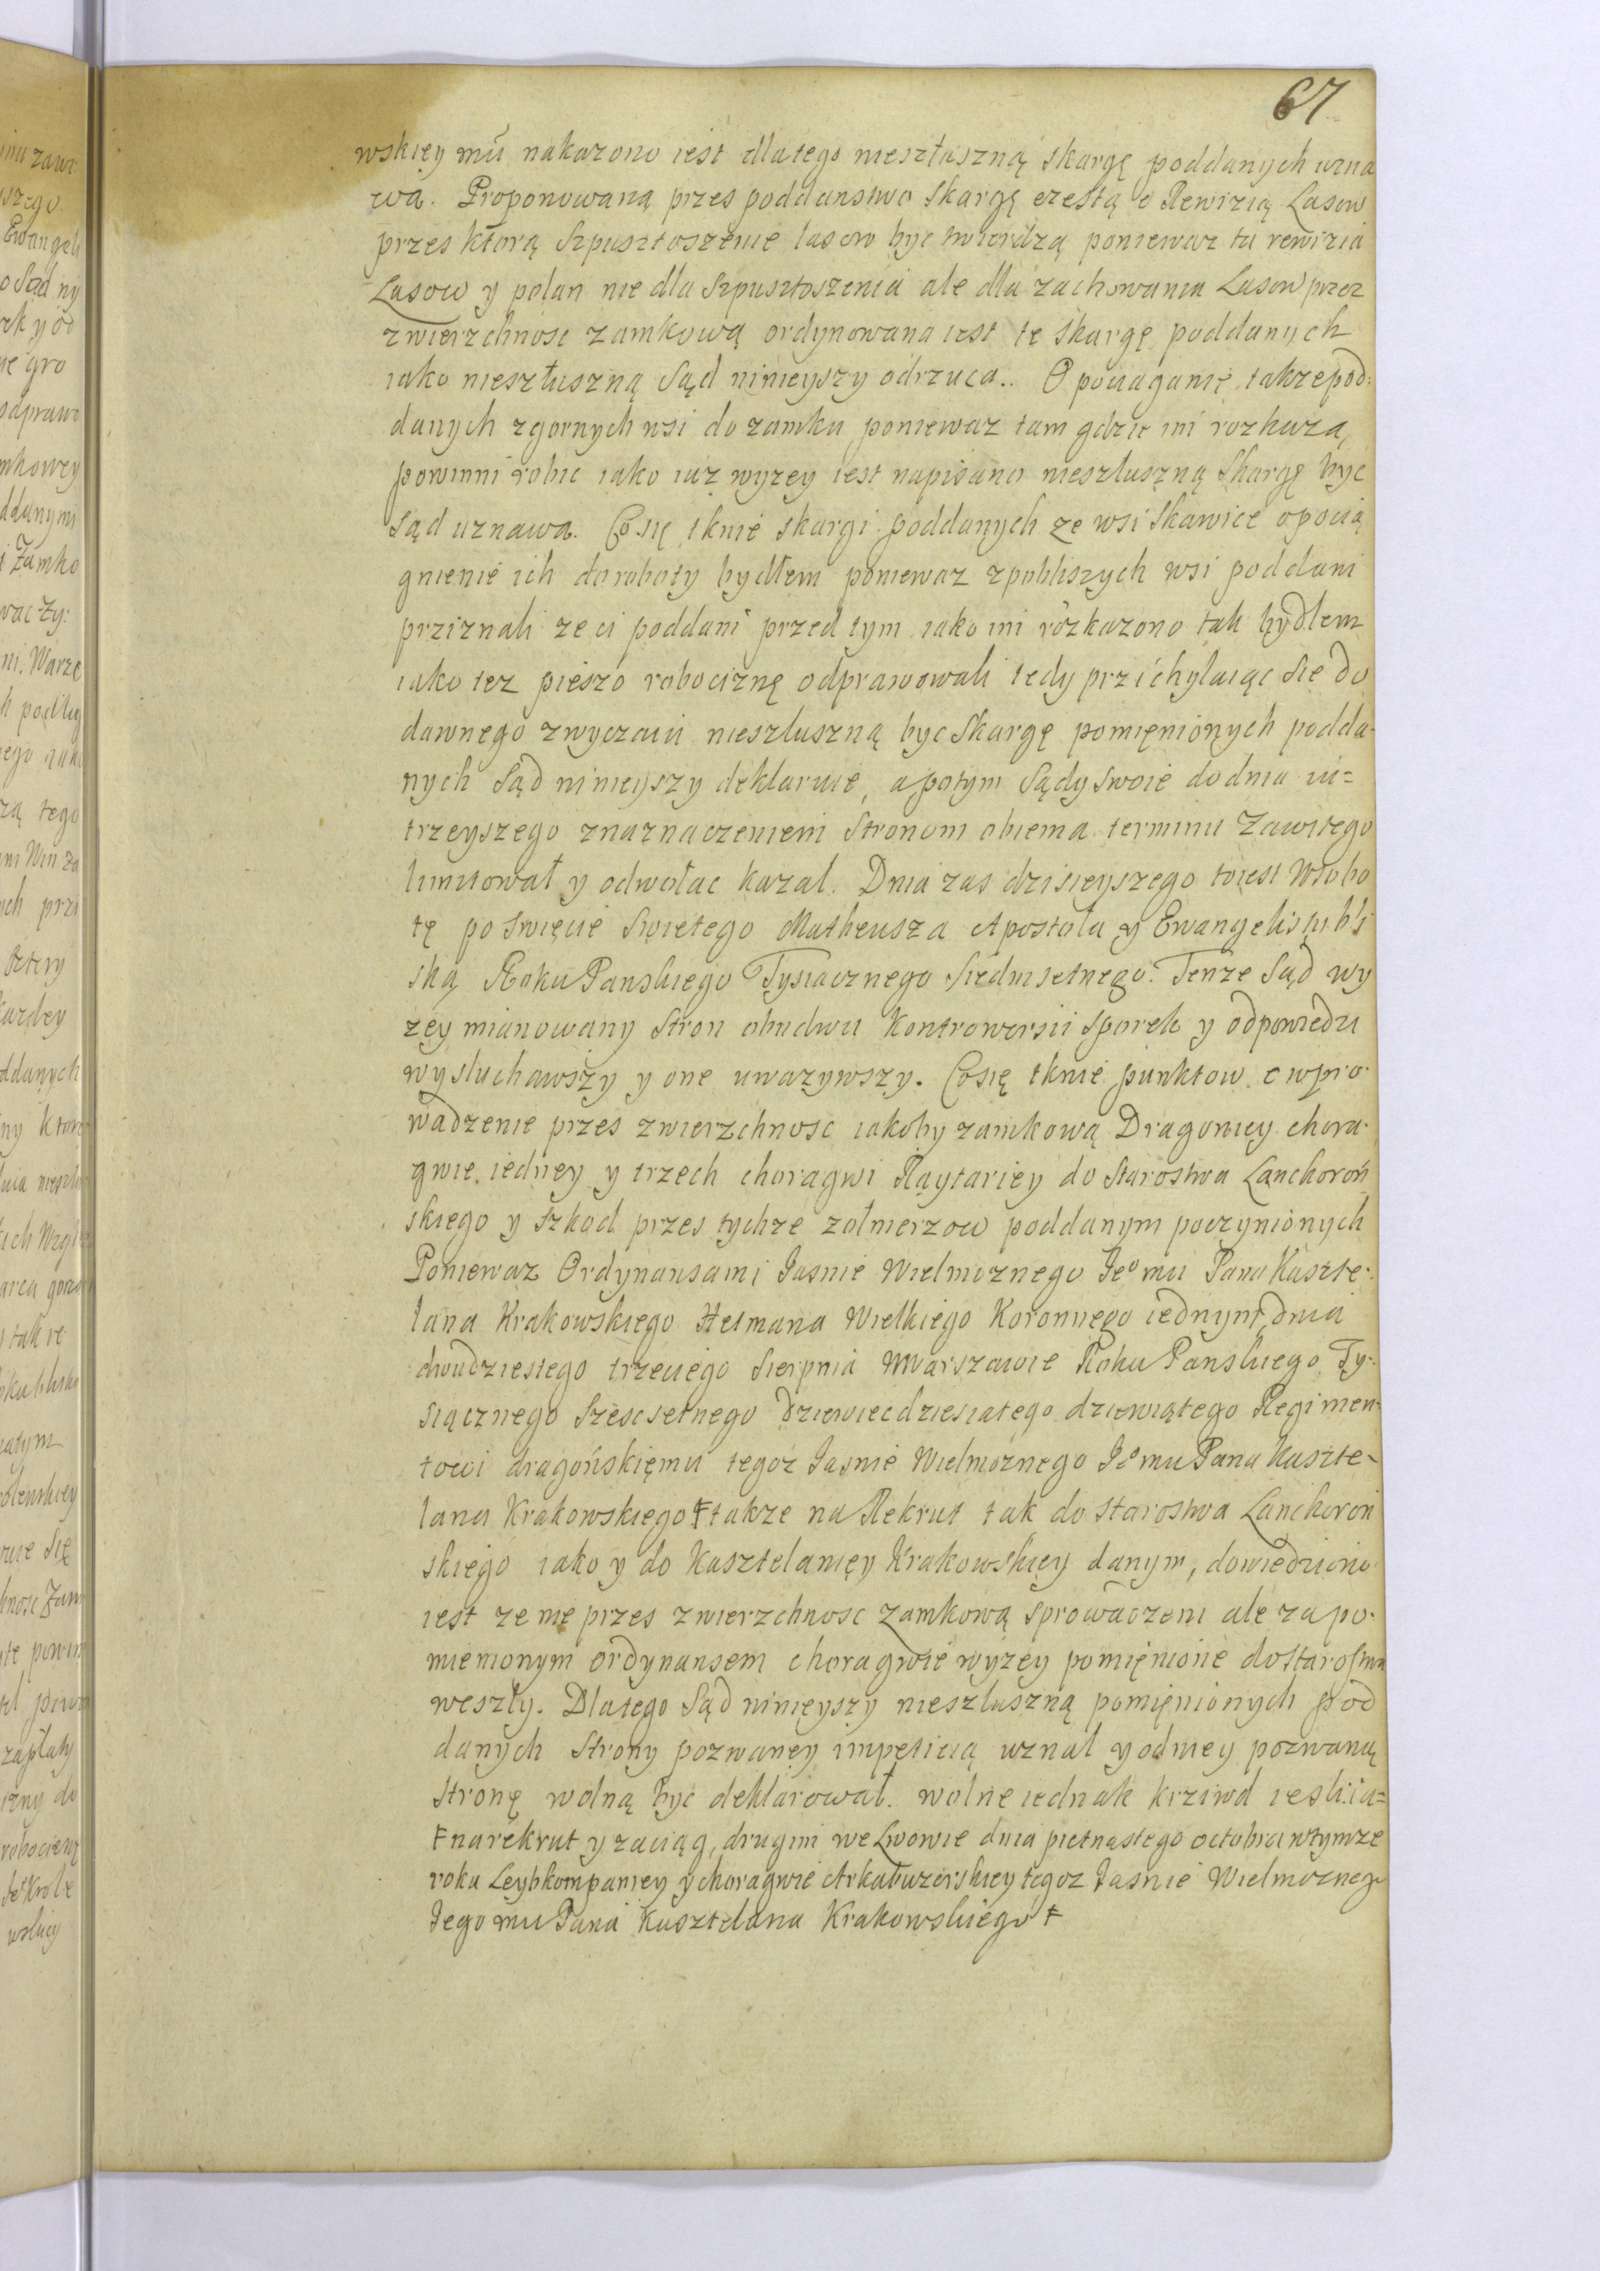 67
wskiey mu nakazono iest dlatego nieszłuszną skargę poddanych uzna
wa. Proponowaną przes poddanstwo skargę czestą o Rewizią Lasow
przes ktorą szpusztoszenie lasow byc twierdzą poniewaz ta rewizia
Lasow y polan nie dla szpusztoszenia ale dla zachowania Lasow przez
zwierzchnosc zamkową ordynowana iest te skargę poddanych
iako nieszłuszną Sąd ninieyszy odrzuca.. O pociaganie takze pod:
danych zgornych wsi do zamku poniewaz tam gdzie im rozkaza,
powinni robic iako iuz wyzey iest napisano nieszluszną skargę byc
Sąd uznawa. Co się tknie skargi poddanych ze wsi Skawice o pocią
gnienie ich do roboty bydłem poniewaz zpobliszych wsi poddani
prziznali ze ci poddani przed tym iako im rozkazono tak bydlem
iako tez pieszo robociznę odprawowali tedy przichylaiąc się do
dawnego zwyczaiu nieszluszną byc skargę pomięnionych podda-
nych Sąd ninieyszy deklaruie, a potym Sądy swoie do dnia iu=
trzeyszego znaznaczeniem Stronom obiema terminu zawitego
limitował y odwołac kazal. Dnia zas dzisieyszego toiest wsobo
tę po swięcie Swietego Matheusza Apostoła y Ewangelisty bli
ską Roku Panskiego Tysiacznego Siedmsetnego. Tenze Sąd wy
zey mianowany Stron obudwu kontrowersii sporek y odpowiedzi
wysluchawszy y one uwazywszy. Co się tknie punktow o wpro-
wadzenie przes zwierzchnosc iakoby zamkową Dragoniey chora-
gwie iedney y trzech choragwi Raytariey do Starostwa Lanchoroń
skiego y szkod przes tychze zolnierzow poddanym poczynionych
Poniewaz Ordynansami Jasnie Wielmoznego Jeo mu Pana Kaszte-
lana Krakowskiego Hetmana Wielkiego Koronnego iednym dnia
dwudziestego trzeciego Sierpnia wWarszawie Roku Panskiego Ty-
siącznego Szescsetnego Dziewiecdziesiatego dziewiątego Regimen-
towi dragońskięmu tegoz Jasnie Wielmoznego Jeo mu Pana Kaszte-
lana Krakowskiego ‡ takze na Rekrut tak do Starostwa Lanchoroń
skiego iako y do Kasztelaniey Krakowskiey danym, dowiedziono
iest ze nie przes zwierzchnosc zamkową sprowadzeni ale za po-
mienionym ordynansem choragwie wyzey pomięnione do starostwa
weszły. Dlatego Sąd ninieyszy nieszluszną pomięnionych pod
danych Strony pozwaney impeticią uznal y odniey pozwaną
Stronę wolną byc deklarował. wolne iednak krziwd iesli ia=
‡ na rekrut y zaciąg, drugim we Lwowie dnia pietnastego octobra wtymze
roku Leybkompaniey y choragwie Arkabuzerskiey tegoz Jasnie Wielmoznego
Jego mu Pana Kasztelana Krakowskiego ‡